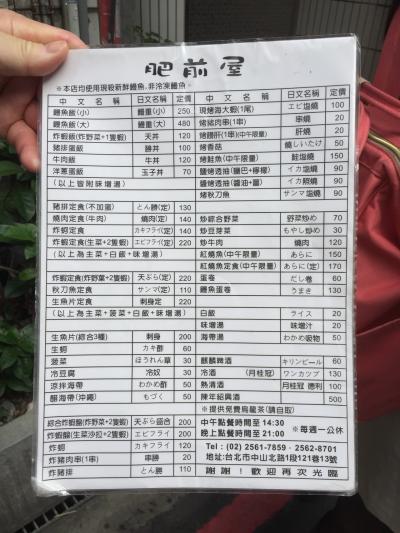 肥前屋
※本店均使用現殺新鮮鰻魚,非冷凍鰻魚。
中文名稱 日文名稱 定價
鰻魚飯(小) 鰻重(小) 250
鰻魚飯(大) 鰻重(大) 480
炸蝦飯(炸野菜+1隻蝦) 天丼
豬排蛋飯 勝丼
牛肉飯 牛丼 120
洋蔥蛋飯 玉子丼 70
(以上皆附味增湯)
豬排定食(不加蛋) とん勝(定) 130
燒肉定食(牛肉) 燒肉(定) 140
炸蚵定食 カキフライ(定) 140
炸蝦定食(生菜+2隻蝦) エビフライ(定) 220
(以上為主+白飯+味增湯)
炸蝦定食(炸野菜+2隻蝦) 天ぷら(定) 220
秋刀魚定食 サンマ(定) 110
生魚片定食 刺身定 220
(以上為主+菠菜+白飯+味增湯)
生魚片(綜合3種) 刺身 200
生蚵 カキ酢 60
菠菜 ほうれん草 30
冷豆腐 冷奴 30
涼拌海帶 わかめ酢 50
醋海帶(沖繩) もづく 50
綜合炸蝦盤(炸野菜+2隻蝦) 天ぷら盛合 200
炸蝦盤(生菜沙拉+2隻蝦) エビフライ 200
炸蚵 カキフライ 120
炸豬肉串(1串) 串勝 20
炸豬排 とん勝 110
中文名稱 日文名稱 定價
現烤海大蝦(1尾) エビ塩燒 100
烤豬肉串(1串) 串燒 20
烤雞肝(1串)(中午限量) 肝燒 20
烤香菇 燒しいたけ 50
烤鮭魚(中午限量) 鮭塩燒 150
鹽烤透抽(鹽巴+檸檬) イカ塩燒 90
鹽烤透抽(醬油+薑) イカ照燒 90
烤秋刀魚 サンマ塩燒 90
炒綜合野菜 野菜炒め 70
炒豆芽菜 もやし炒め 30
炒牛肉 燒肉 120
紅燒魚(中午限量) あらに 150
紅燒魚定食(中午限量) あらに(定) 170
蛋卷 だし卷 60
鰻魚蛋卷 うまき 130
白飯 ライス 20
味增湯 味增汁 20
海帶湯 わかめ吸物 50
麒麟啤酒 キリンビール 60
冷酒 (月桂冠) ワンカップ 130
熱清酒 月桂冠 德利 100
陳年紹興酒 500
※提供免費烏龍茶(請自取)
中午點餐時間至 14:30
晚上點餐時間至 21:00 ※每週一公休
Tel : (02) 2561-7859‧2562-8701
地址:台北市中山北路1段121巷13號
謝謝!歡迎再次光臨